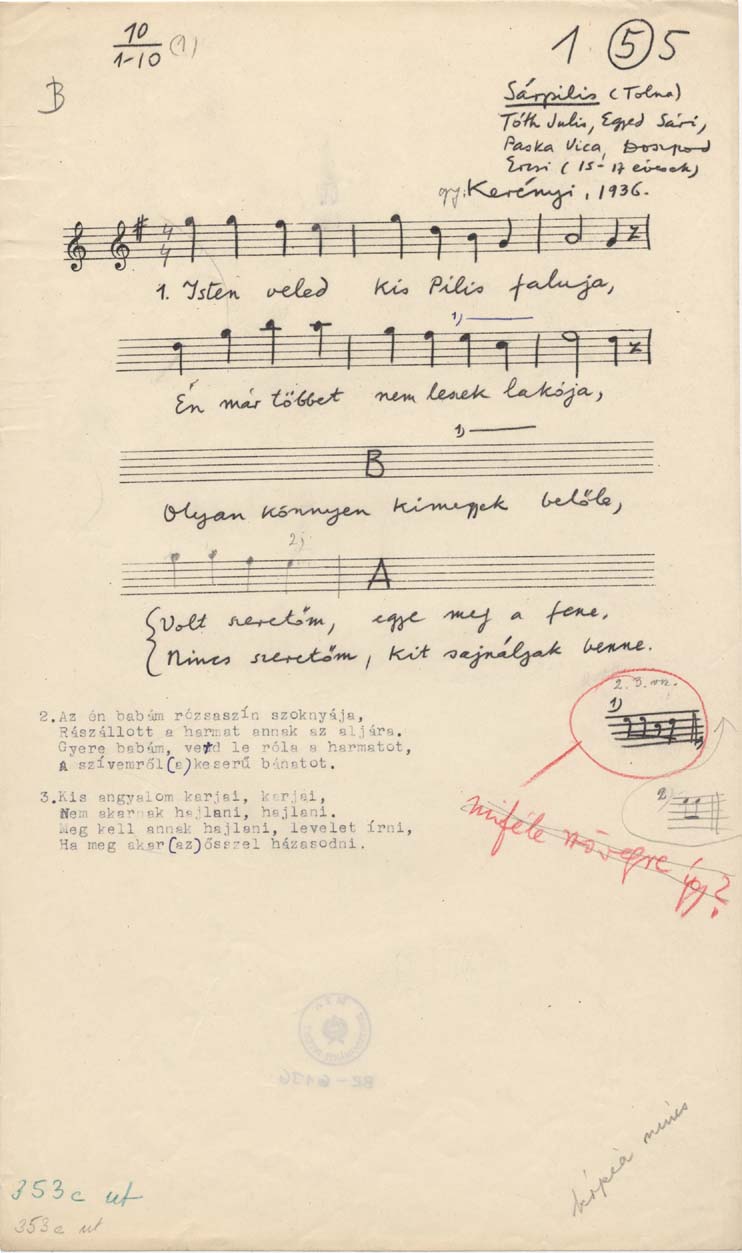 10
1-10 (1)
1 5 5
B
Sárpilis (Tolna)
Tóth Julis, Egyed Sári,
Paska Vica,
Erzsi (15-17 évesek)
gy. Kerényi, 1936.
4
4
1. Isten veled kis Pilis faluja,
1)
Én már többet nem leszek lakója,
1)
B
Olyan könnyen kimegyek belőle,
2)
A
Volt szeretőm, egye meg a fene.
Nincs szeretőm, kit sajnáljak benne.
2. 3. vsz.
1)
2)
2. Az én babám rózsaszín szoknyája,
Rászállott a harmat annak az aljára.
Gyere babám, verd le róla a harmatot,
A szívemről (a) keserű bánatot.
3. Kis angyalom karjai, karjai,
Nem akarnak hajlani, hajlani.
Meg kell annak hajlani, levelet írni,
Ha meg akar (az) ősszel házasodni.
miféle szövegre így?
BR-6136
kópia nincs
353c ut
353c ut